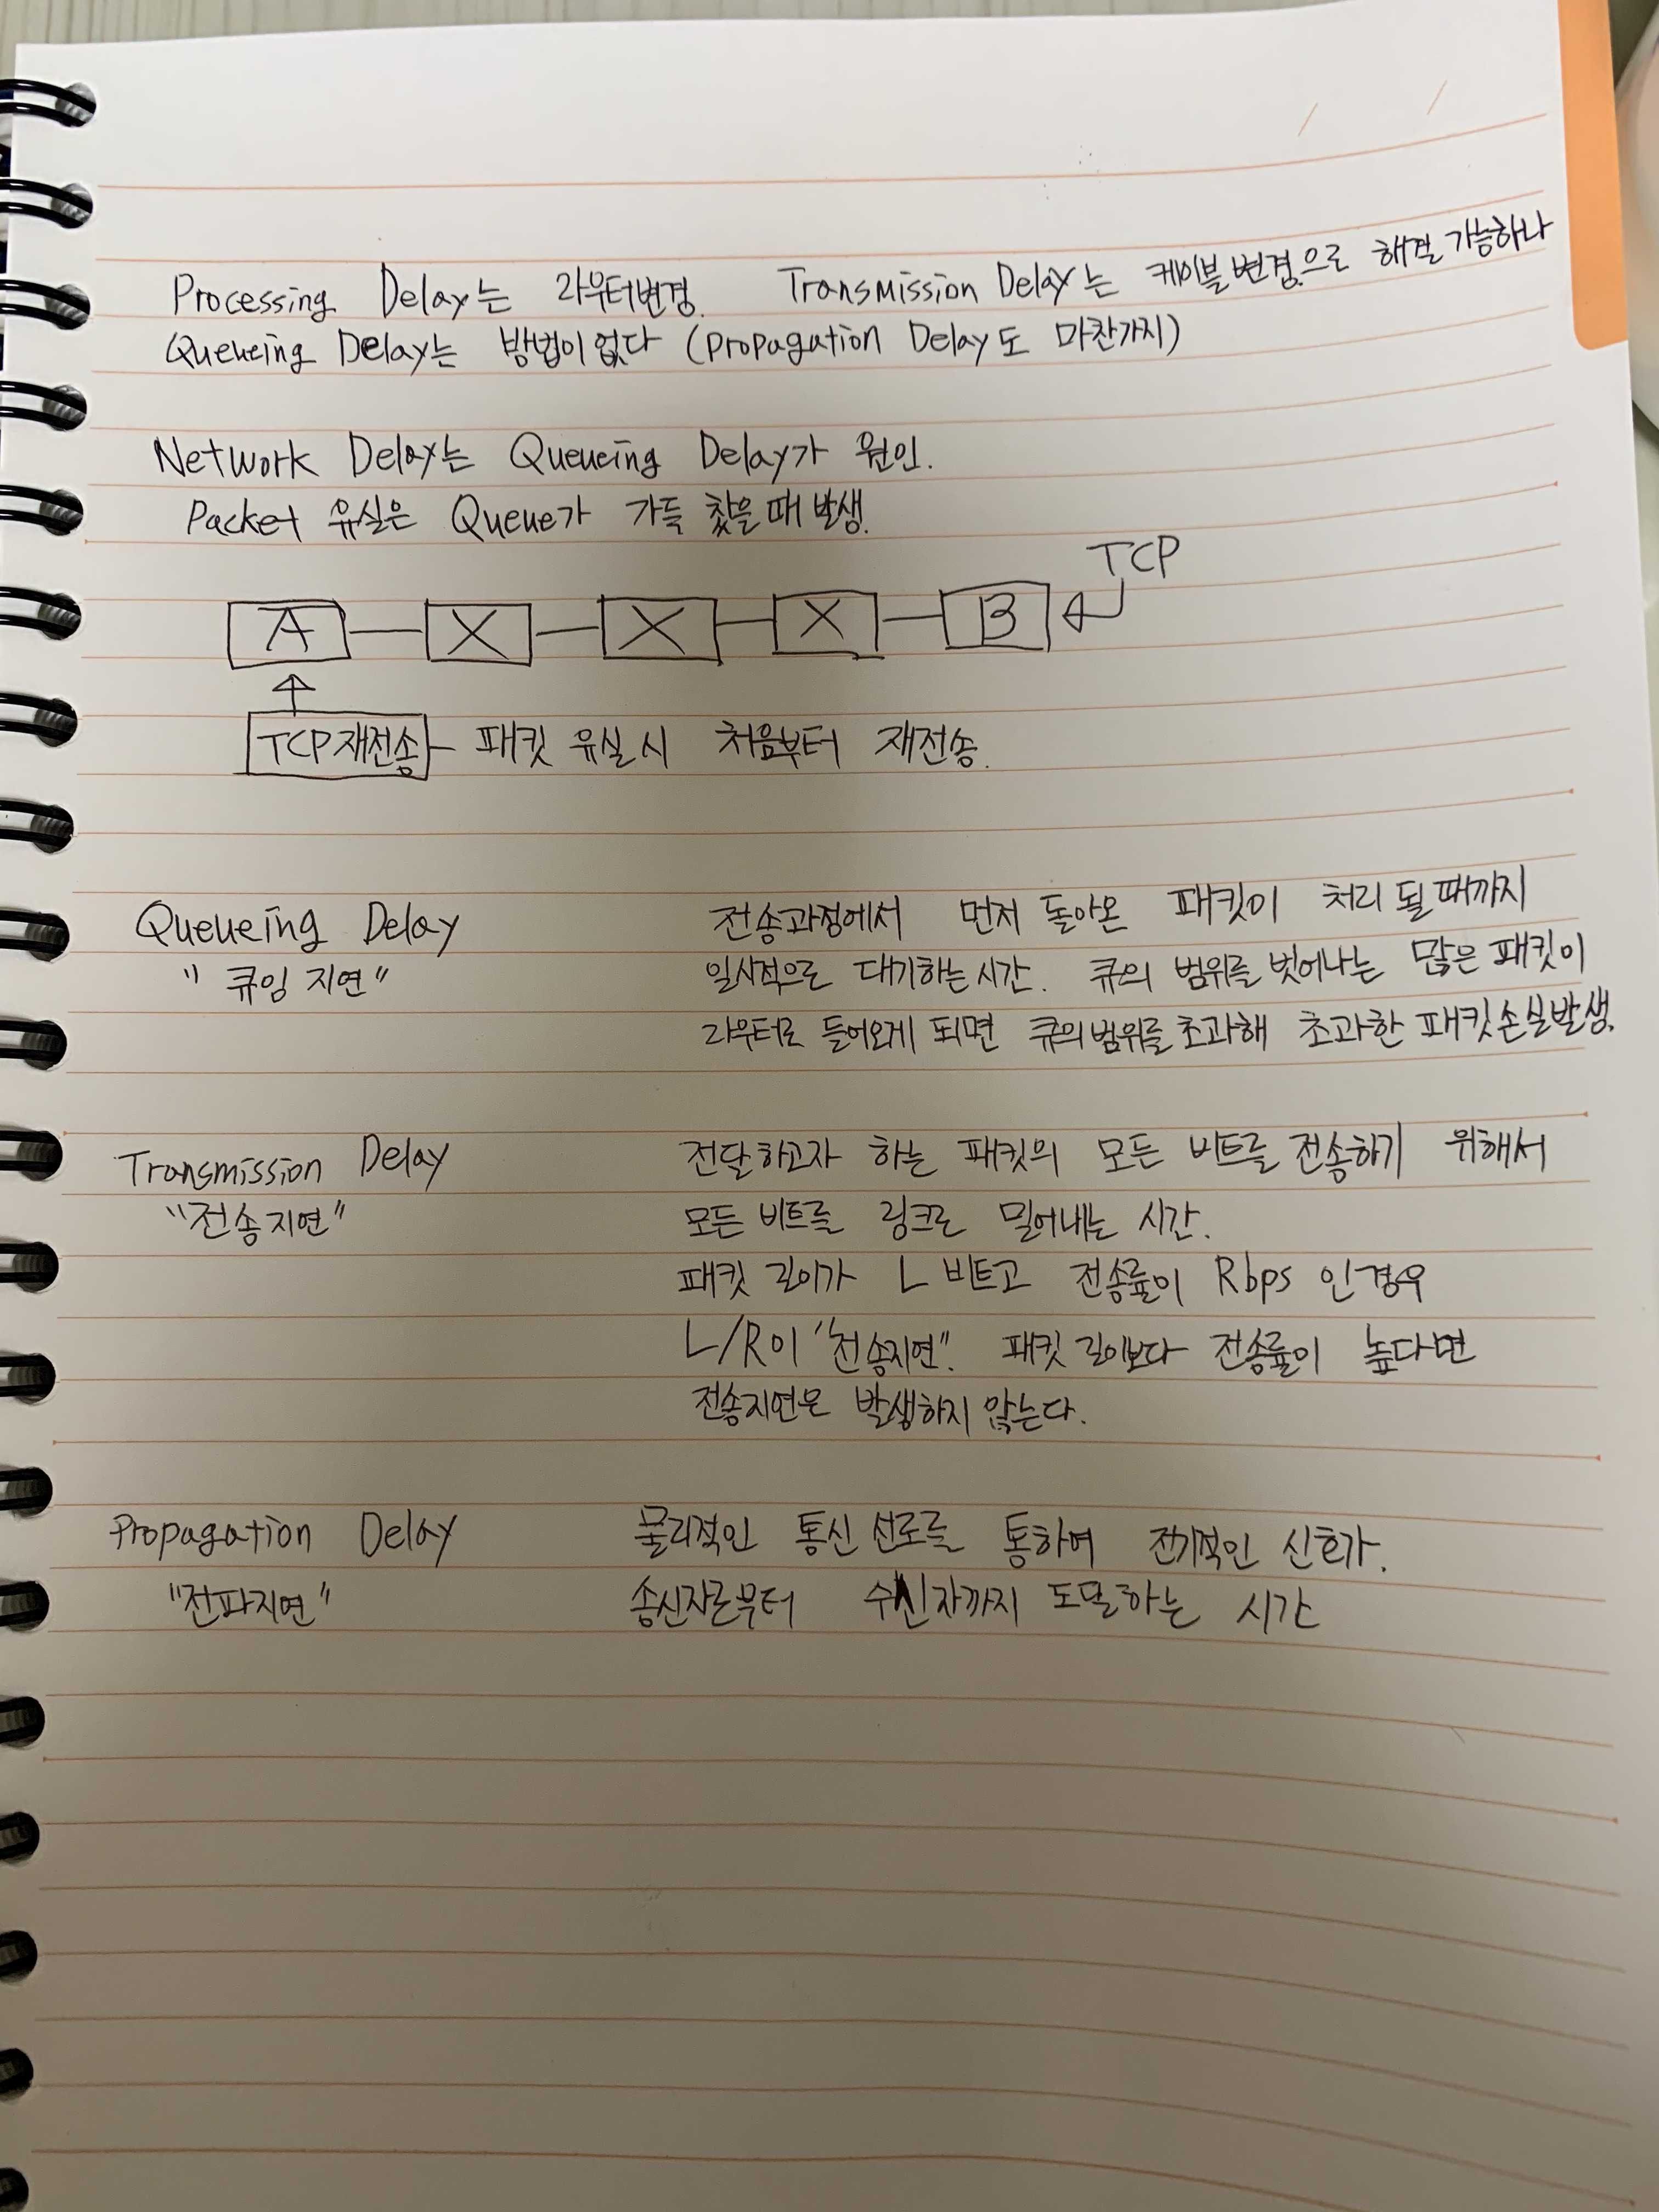 Processing Delay는 라우터변경. Transmission Delay는 케이블변경으로 해결 가능하나
Queueing Delay는 방법이 없다 (Propagation Delay도 마찬가지)
Network Delay는 Queueing Delay가 원인.
Packet 유실은 Queue가 가득 찼을 때 발생.
TCP
A X X X B
TCP 재전송 - 패킷 유실 시 처음부터 재전송.
Queueing Delay 전송과정에서 먼저 돌아온 패킷이 처리 될때까지
"큐잉 지연" 일시적으로 대기하는 시간. 큐의 범위를 벗어나는 많은 패킷이
라우터로 들어오게 되면 큐의 범위를 초과해 초과한 패킷 손실발생.
Transmission Delay 전달하고자 하는 패킷의 모든 비트를 전송하기 위해서
"전송지연" 모든 비트를 링크로 밀어내는 시간.
패킷 길이가 L 비트고 전송률이 Rbps 인경우
L/R이 "전송지연". 패킷 길이보다 전송률이 높다면
전송지연은 발생하지 않는다.
Propagation Delay 물리적인 통신 선로를 통하여 전기적인 신호가.
"전파지연" 송신자로부터 수신자까지 도달하는 시간